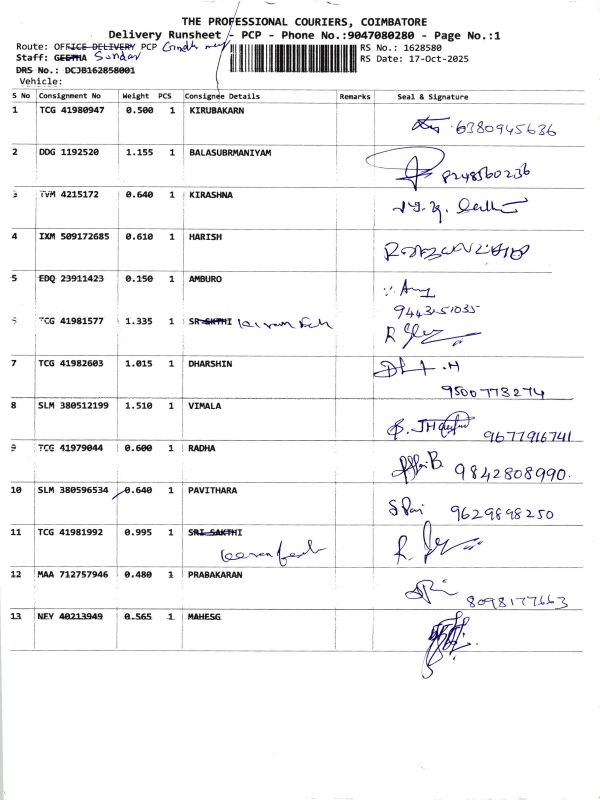 THE PROFESSIONAL COURIERS, COIMBATORE
Delivery Runsheet - PCP - Phone No.:9047080280 - Page No.:1
Route: OFFICE DELIVERY PCP
RS No.: 1628580
Staff: GEETHA Sundar
RS Date: 17-Oct-2025
DRS No.: DCJB162858001
Vehicle:
S No Consignment No Weight PCS Consignee Details Remarks Seal & Signature
1 TCG 41980947 0.500 1 KIRUBAKARN 6380945636
2 DDG 1192520 1.155 1 BALASUBRMANIYAM 8248560236
3 TVM 4215172 0.640 1 KIRASHNA
4 IXM 509172685 0.610 1 HARISH
5 EDQ 23911423 0.150 1 AMBURO
9443151035
6 TCG 41981577 1.335 1 SR SKTHI
7 TCG 41982603 1.015 1 DHARSHIN
9500773274
8 SLM 380512199 1.510 1 VIMALA 9677916741
9 TCG 41979044 0.600 1 RADHA 9842808990
10 SLM 380596534 0.640 1 PAVITHARA 9629898250
11 TCG 41981992 0.995 1 SRI SAKTHI
12 MAA 712757946 0.480 1 PRABAKARAN 8098177663
13 NEY 40213949 0.565 1 MAHESG